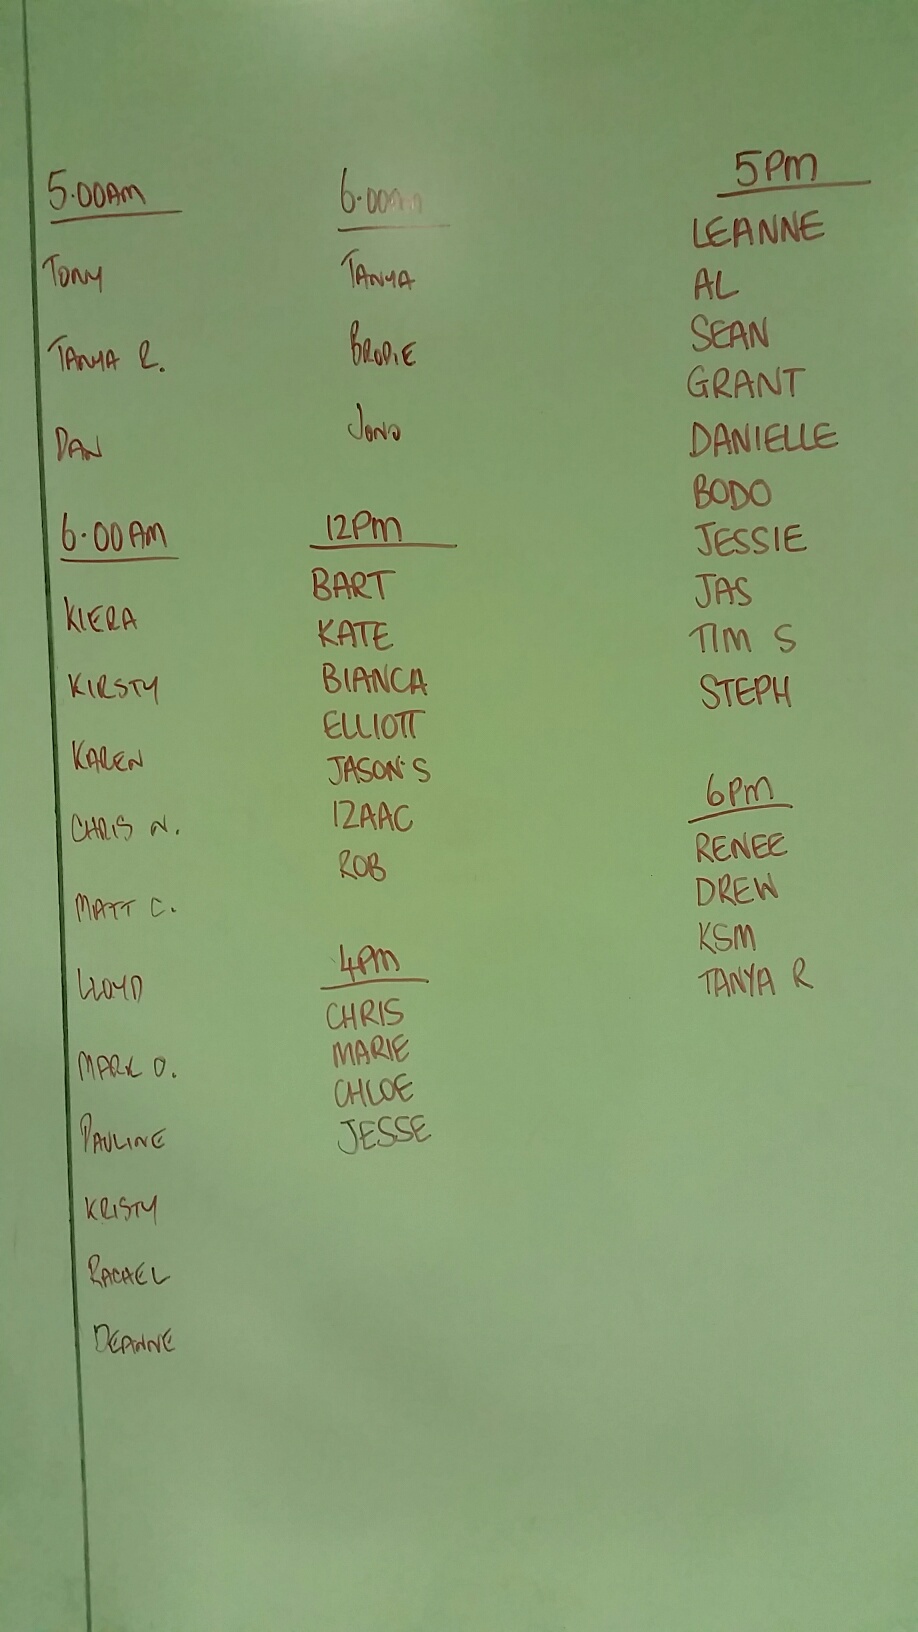 5.00AM
TONY
TANYA R.
DAN
6.00AM
KIERA
KIRSTY
KAREN
CHRIS N.
MATT C.
LLOYD
MARK O.
PAULINE
KRISTY
RACAEL
DEANNE
6.00am
TANYA
BRODIE
JONO
12PM
BART
KATE
BIANCA
ELLIOTT
JASON S
IZAAC
ROB
4PM
CHRIS
MARIE
CHLOE
JESSE
5PM
LEANNE
AL
SEAN
GRANT
DANIELLE
BODO
JESSIE
JAS
TIM S
STEPH
6PM
RENEE
DREW
KSM
TANYA R